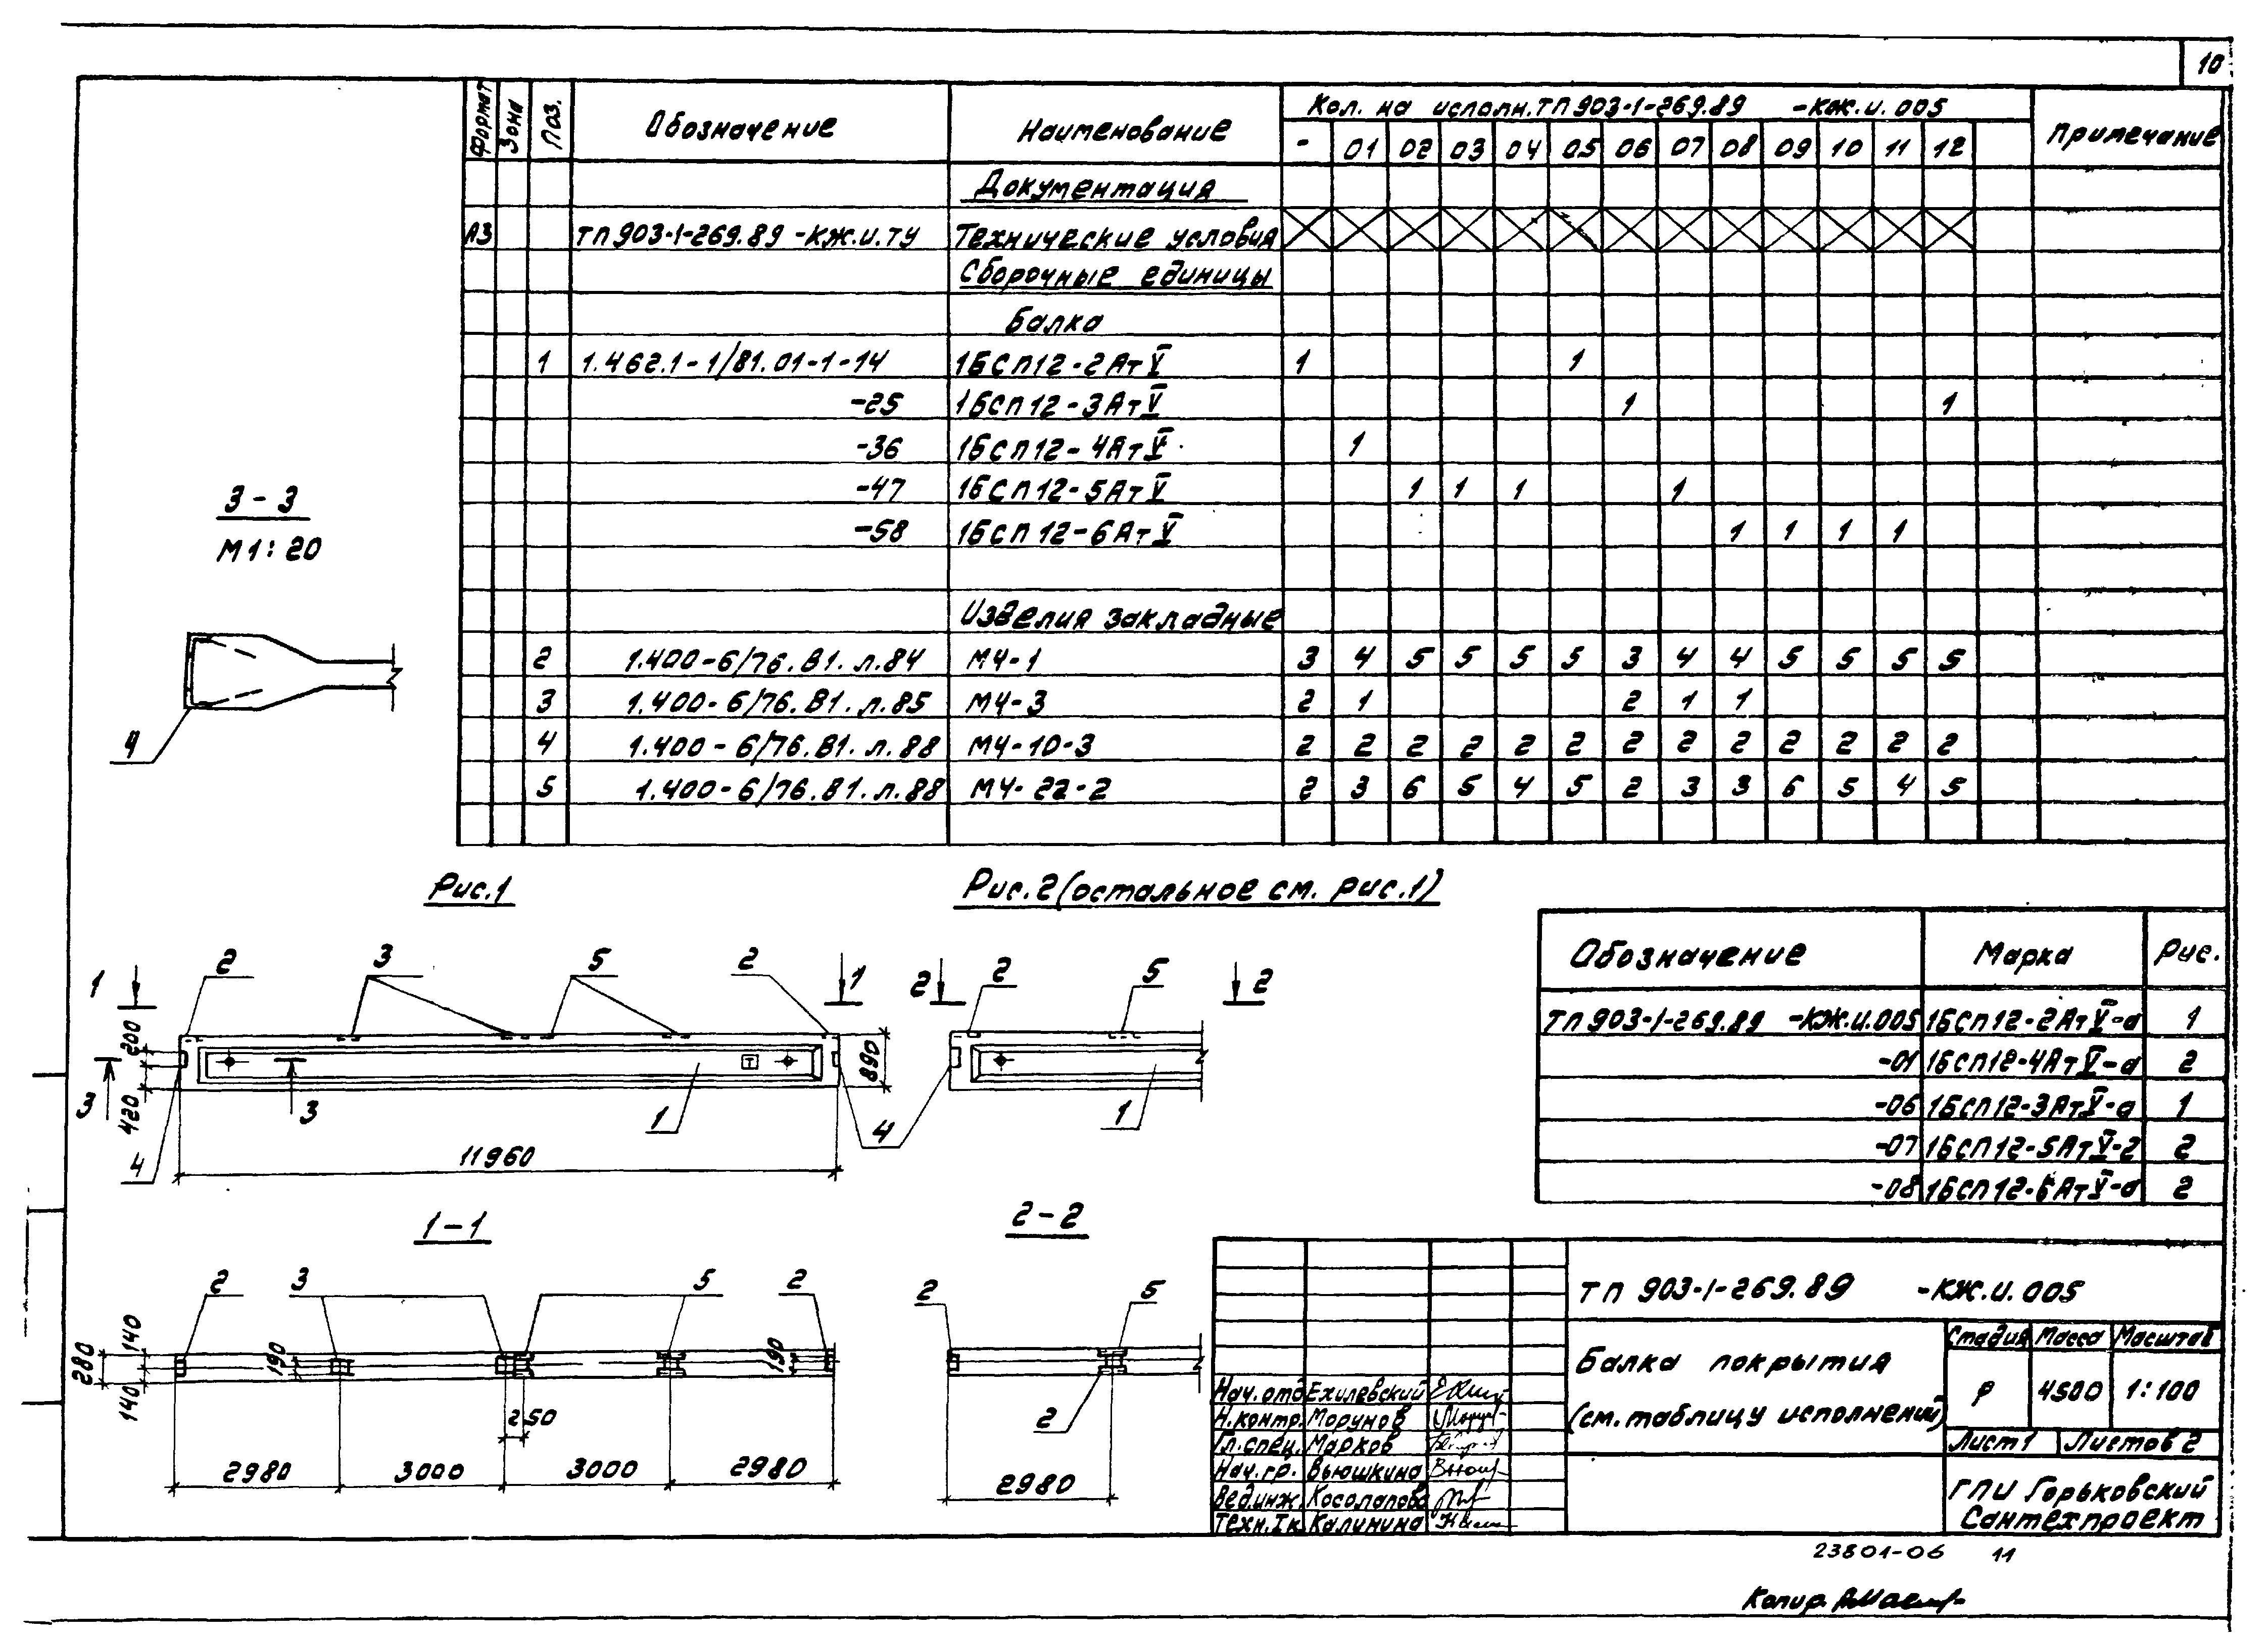 10
Формат Зона Поз. Обозначение Наименование Кол. на исполн. ТП 903-1-269.89 -КЖ.И.005 Примечание
- 01 02 03 04 05 06 07 08 09 10 11 12
Документация
А3 ТП 903-1-269.89 -КЖ.И.ТУ Технические условия
Сборочные единицы
Балка
1 1.462.1-1/81.01-1-14 1БСП12-2АтV 1 1
-25 1БСП12-3АтV 1 1
-36 1БСП12-4АтV 1
-47 1БСП12-5АтV 1 1 1 1
-58 1БСП12-6АтV 1 1 1 1
Изделия закладные
2 1.400-6/76.В1.л.84 М4-1 3 4 5 5 5 5 3 4 4 5 5 5 5
3 1.400-6/76.В1.л.85 М4-3 2 1 2 1 1
4 1.400-6/76.В1.л.88 М4-10-3 2 2 2 2 2 2 2 2 2 2 2 2 2
5 1.400-6/76.В1.л.88 М4-22-2 2 3 6 5 4 5 2 3 3 6 5 4 5
3-3
М1:20
4
Рис.1
1 2 3 5 2 1
200
420
3 3
890
1
4
4
11960
Рис.2 (остальное см. рис.1)
2 2 5 2
1
Обозначение Марка Рис.
ТП 903-1-269.89 -КЖ.И.005 1БСП12-2АтV-а 1
-01 1БСП12-4АтV-а 2
-06 1БСП12-3АтV-а 1
-07 1БСП12-5АтV-2 2
-08 1БСП12-6АтV-а 2
1-1
2 3 5 2
280
140
140
190 190
250
2980 3000 3000 2980
2-2
2 5
2
2980
ТП 903-1-269.89 -КЖ.И.005
Балка покрытия
(см. таблицу исполнений)
Стадия Масса Масштаб
Р 4500 1:100
Лист 1 Листов 2
ГПИ Горьковский
Сантехпроект
Нач.отд Ехилевский
Н.контр. Морунов
Гл.спец. Марков
Нач.гр. Вьюшкина
Вед.инж. Косолапова
Техн.Iк Калинина
23801-06 11
Копир.